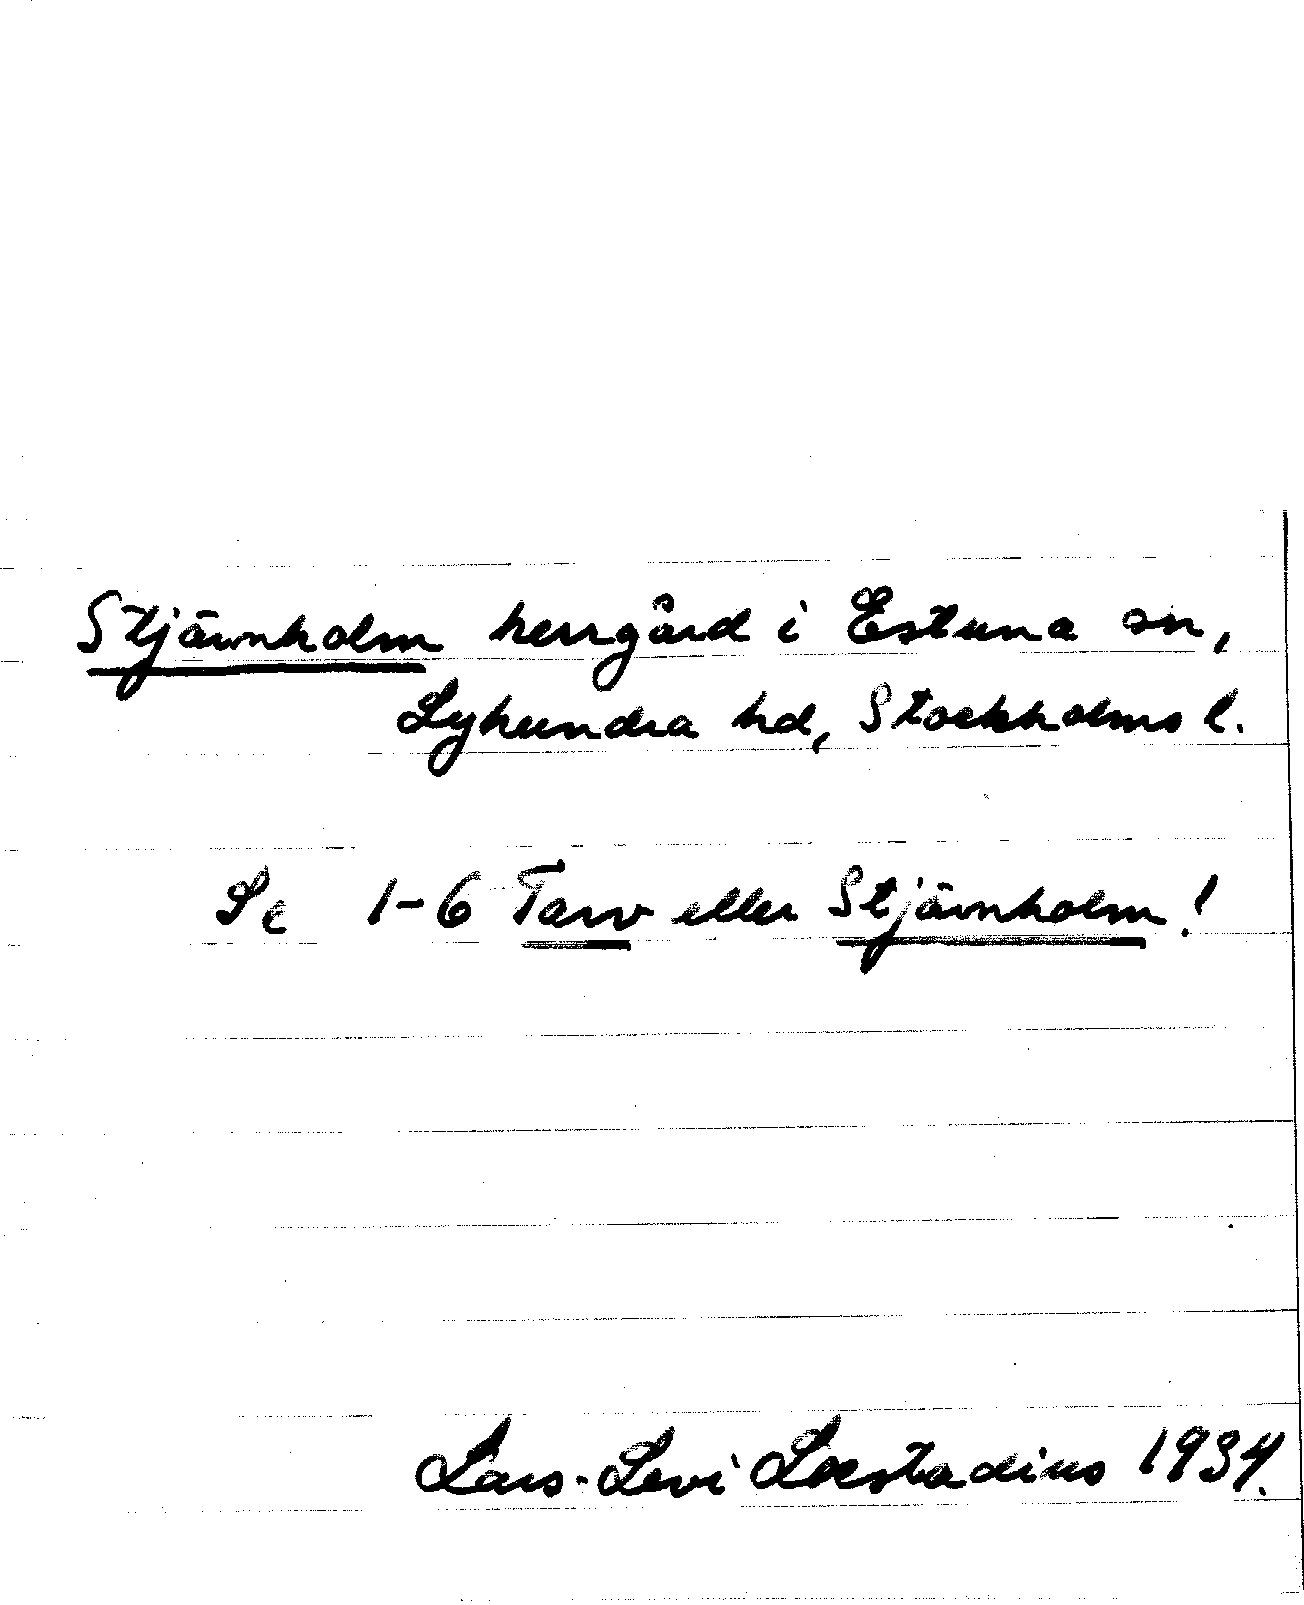 Stjärnholm herrgård i Estuna sn,
Lyhundra hd, Stockholms l.
Se 1-6 Tarv eller Stjärnholm!
Lars-Levi Læstadius 1934.